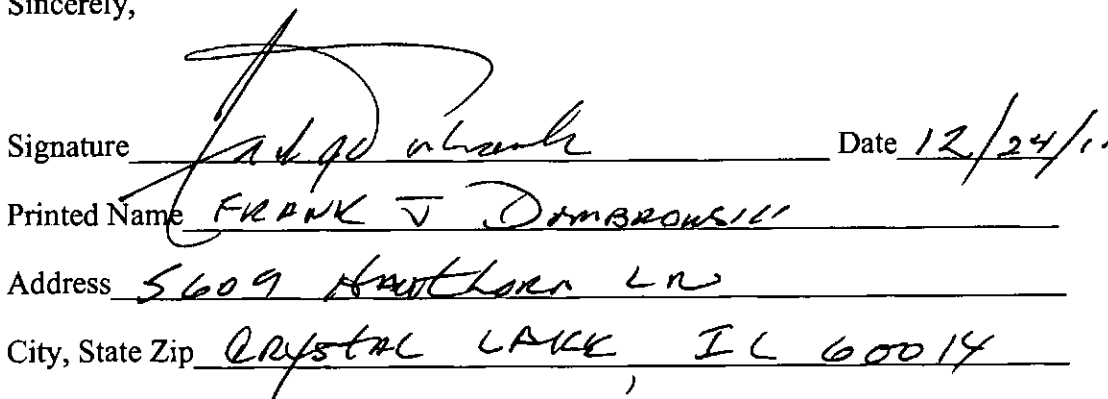 Sincerely,
Signature Date 12/24/1
Printed Name FRANK J DOMBROWSKI
Address 5609 Hawthorn LN
City, State Zip CRYSTAL LAKE, IL 60014